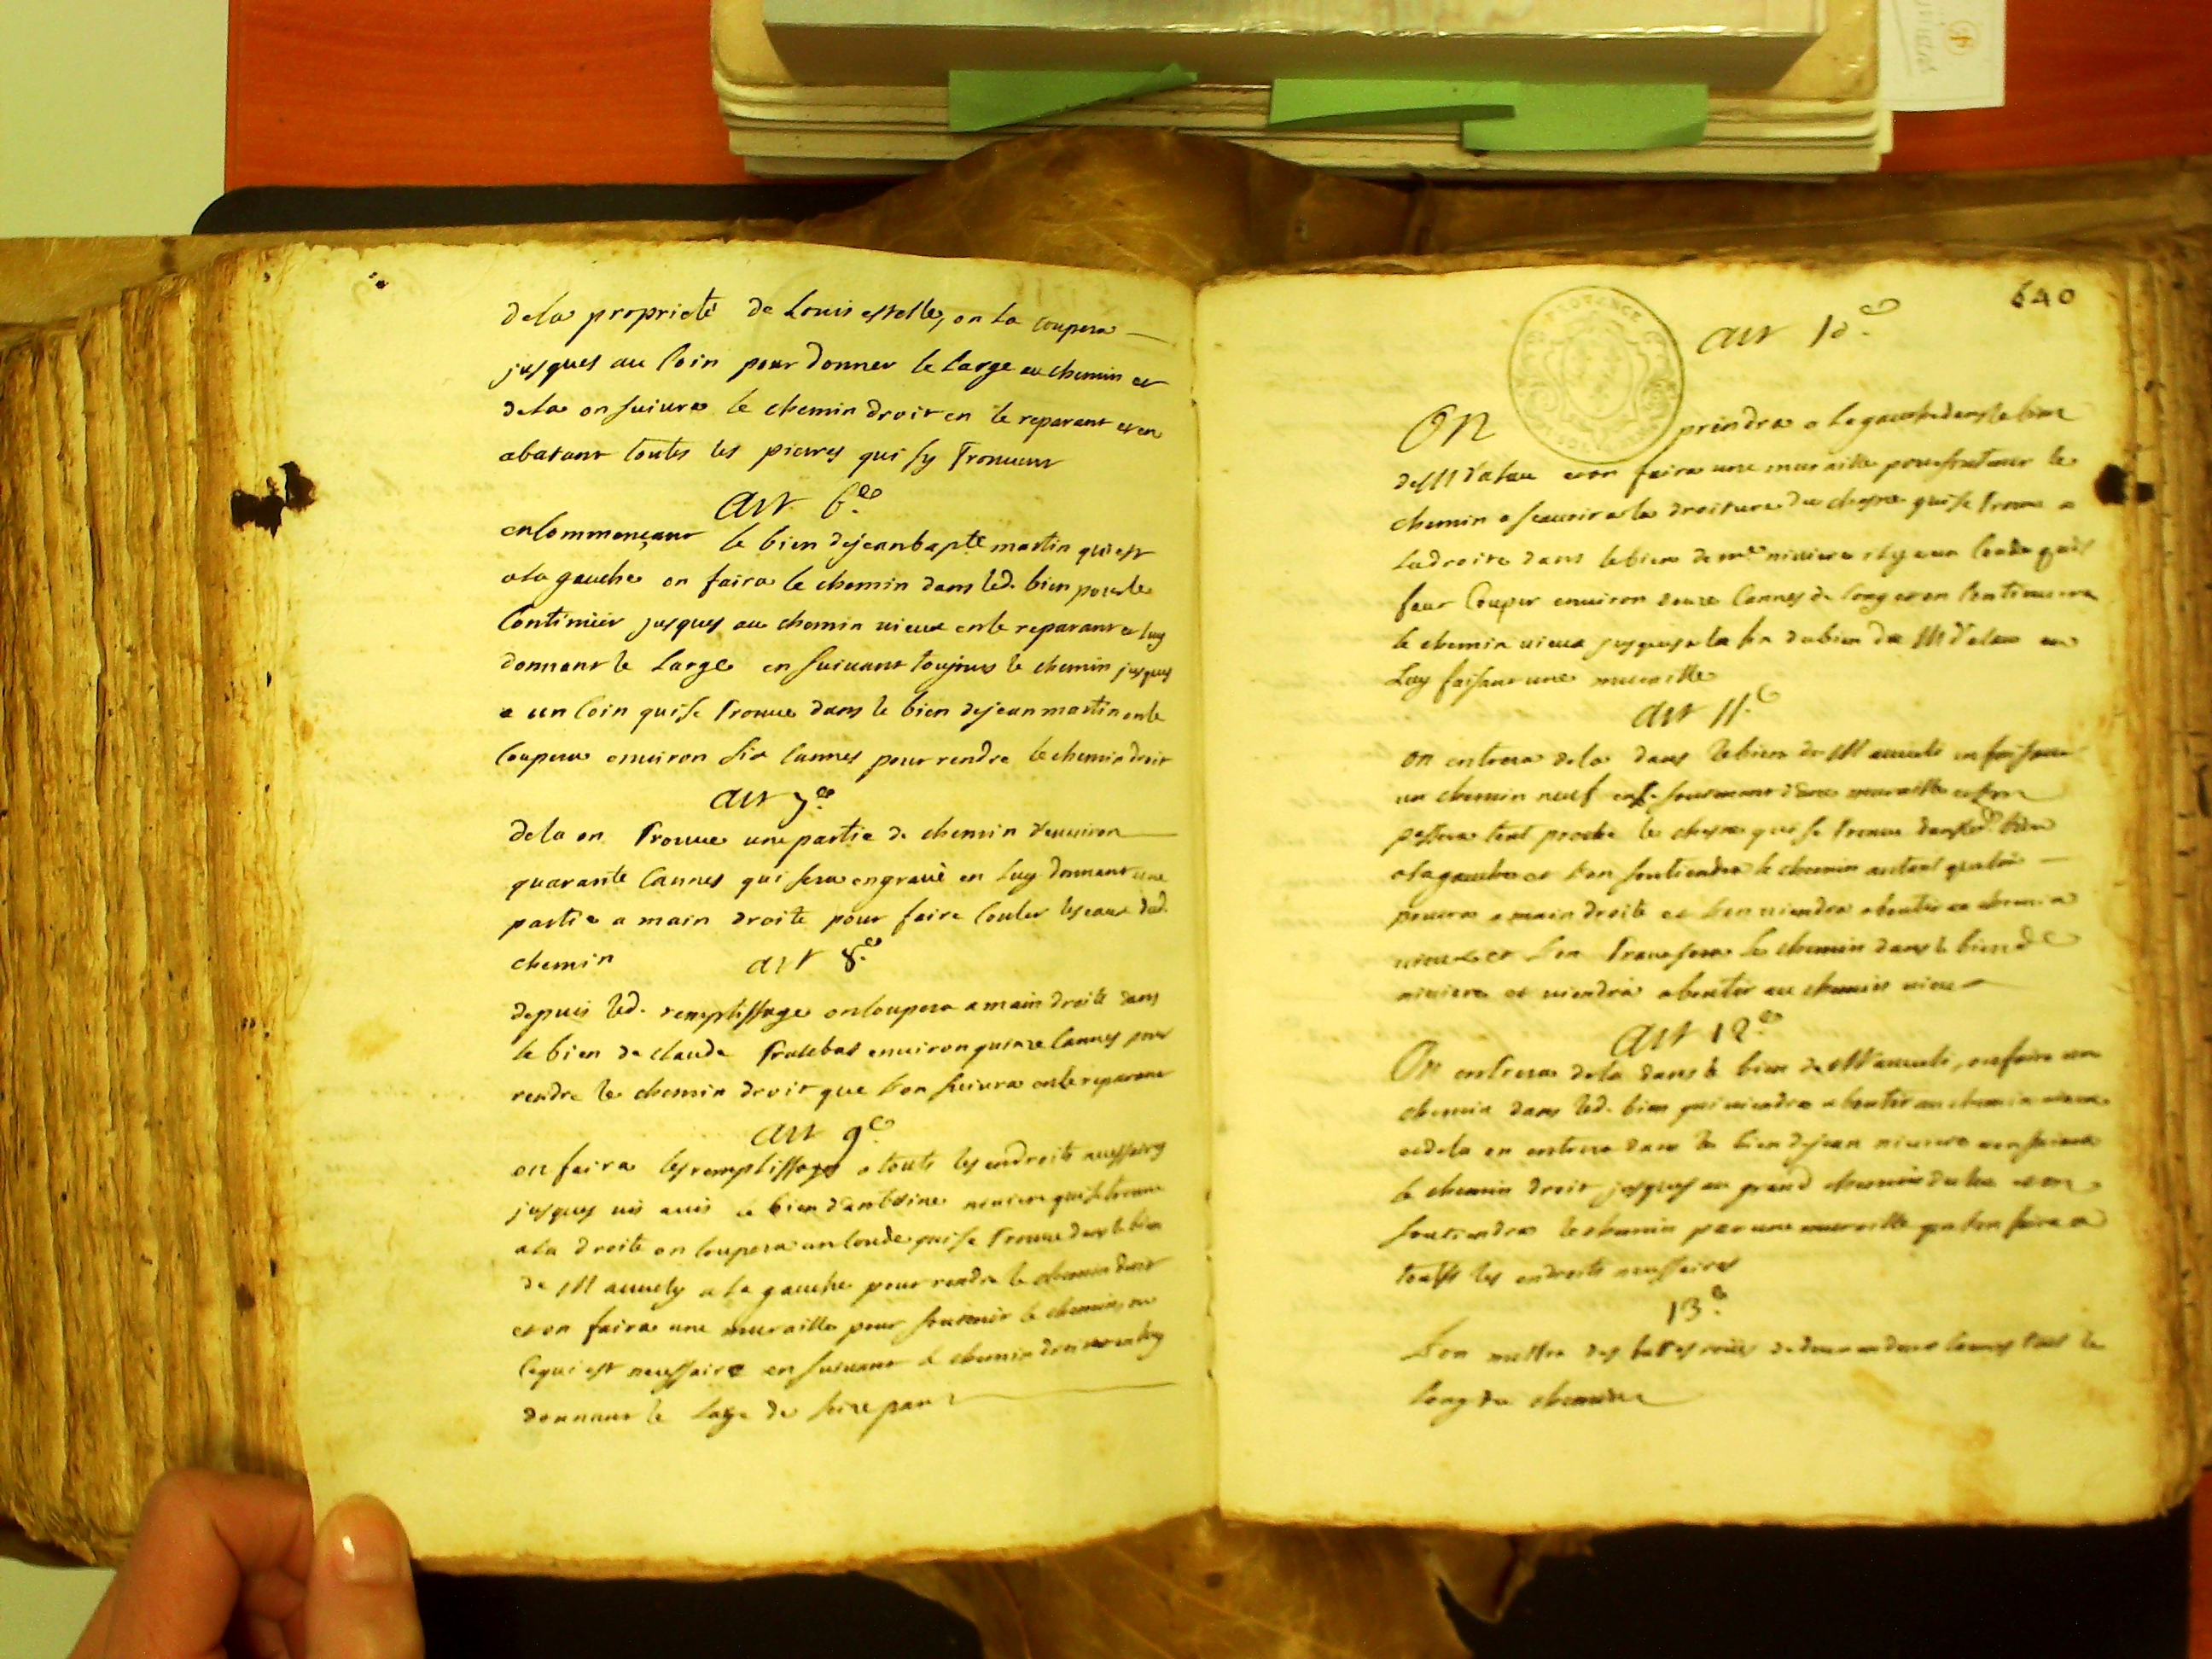 dela proprieté de Louis estelle, on la coupera
jusques au coin pour donner le large au chemin et
dela on suivra le chemin droit en le reparant et en
abatant toutes les pierres qui sy trouvent
art 6.e
en commençant le bien dejeanbapte martin qui est
ala gauche on faira le chemin dans led. bien pour le
continüer jusques au chemin vieux en le reparant et luy
donnant le large en suivant toujours le chemin jusques
a un coin qui se trouve dans le bien dejean martin on le
coupera environ six cannes pour rendre le chemin droit
art 7.e
dela on trouve une partie de chemin d'environ
quarante cannes qui sera engravé en luy donnant une
partie a main droite pour faire couler les eaux dud.
chemin
art 8.e
depuis led. remplissage on coupera a main droite dans
le bien de claude environ quinze cannes pour
rendre le chemin droit que l'on suivra en le reparant
art 9.e
on faira les remplissages a touts les endroits neussaires
jusques vis avis le bien d'antoine niviere qui se trouve
ala droite on coupera un coude qui se trouve dans le bien
de M ala gauche pour rendre le chemin droit
et on faira une muraille pour soutenir le chemin
ce qui est neussaire en suivant le chemin droit luy
donnant le large de seize pans
640
PROVENCE
art 10.e
On prendra a la gauche dans le bien
de M et on faira une muraille pour soutenir le
chemin a la droiture du chesne qui se trouve a
la droite dans le bien de niviere il y a un coude quil
faut couper environ cannes de long et on continuera
le chemin vieux jusques a la fin du bien de M en
luy faisant une muraille
art 11.e
on entrera dela dans le bien de M en faisant
un chemin neuf muraille
passera tout proche le chesne qui se trouve dans led. bien
ala gauche et l'on soutiendra le chemin autant qu'on
pourra a main droite et l'on viendra aboutir au chemin
vieux et l'on traversera le chemin dans le bien de
niviere et viendra aboutir au chemin vieux
art 12.e
On entrera dela dans le bien de M on faira un
chemin dans led. bien qui viendra aboutir au chemin vieux
et dela on entrera dans le bien dejean niviere on suivra
le chemin droit jusques au grand chemin et on
soutiendra le chemin par une muraille que l'on faira a
touts les endroits neussaires
13.e
Lon mettra des cannes tout le
long du chemin